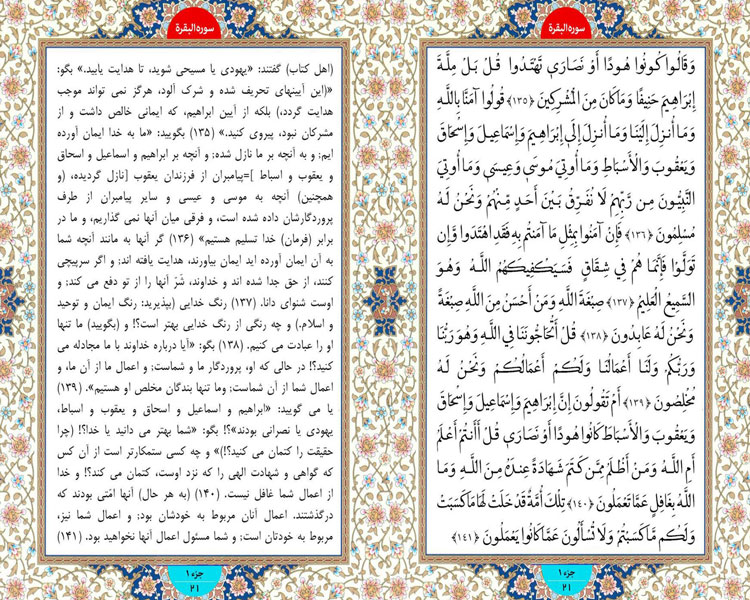 سورةالبقرة
وَقَالُوا كُونُوا هُودًا أَوْ نَصَارَى تَهْتَدُوا قُلْ بَلْ مِلَّةَ
إِبْرَاهِيمَ حَنِيفًا وَمَا كَانَ مِنَ الْمُشْرِكِينَ ﴿۱۳۵﴾ قُولُوا آمَنَّا بِاللَّهِ
وَمَا أُنْزِلَ إِلَيْنَا وَمَا أُنْزِلَ إِلَى إِبْرَاهِيمَ وَإِسْمَاعِيلَ وَإِسْحَاقَ
وَيَعْقُوبَ وَالْأَسْبَاطِ وَمَا أُوتِيَ مُوسَى وَعِيسَى وَمَا أُوتِيَ
النَّبِيُّونَ مِنْ رَبِّهِمْ لَا نُفَرِّقُ بَيْنَ أَحَدٍ مِنْهُمْ وَنَحْنُ لَهُ
مُسْلِمُونَ ﴿۱۳۶﴾ فَإِنْ آمَنُوا بِمِثْلِ مَا آمَنْتُمْ بِهِ فَقَدِ اهْتَدَوْا وَإِنْ
تَوَلَّوْا فَإِنَّمَا هُمْ فِي شِقَاقٍ فَسَيَكْفِيكَهُمُ اللَّهُ وَهُوَ
السَّمِيعُ الْعَلِيمُ ﴿۱۳۷﴾ صِبْغَةَ اللَّهِ وَمَنْ أَحْسَنُ مِنَ اللَّهِ صِبْغَةً
وَنَحْنُ لَهُ عَابِدُونَ ﴿۱۳۸﴾ قُلْ أَتُحَاجُّونَنَا فِي اللَّهِ وَهُوَ رَبُّنَا
وَرَبُّكُمْ وَلَنَا أَعْمَالُنَا وَلَكُمْ أَعْمَالُكُمْ وَنَحْنُ لَهُ
مُخْلِصُونَ ﴿۱۳۹﴾ أَمْ تَقُولُونَ إِنَّ إِبْرَاهِيمَ وَإِسْمَاعِيلَ وَإِسْحَاقَ
وَيَعْقُوبَ وَالْأَسْبَاطَ كَانُوا هُودًا أَوْ نَصَارَى قُلْ أَأَنْتُمْ أَعْلَمُ
أَمِ اللَّهُ وَمَنْ أَظْلَمُ مِمَّنْ كَتَمَ شَهَادَةً عِنْدَهُ مِنَ اللَّهِ وَمَا
اللَّهُ بِغَافِلٍ عَمَّا تَعْمَلُونَ ﴿۱۴۰﴾ تِلْكَ أُمَّةٌ قَدْ خَلَتْ لَهَا مَا كَسَبَتْ
وَلَكُمْ مَا كَسَبْتُمْ وَلَا تُسْأَلُونَ عَمَّا كَانُوا يَعْمَلُونَ ﴿۱۴۱﴾
جزء ۱
۲۱
سورةالبقرة
(اهل کتاب) گفتند: «یهودی یا مسیحی شوید، تا هدایت یابید.» بگو:
«(این آیینهای تحریف شده و شرک آلود، هرگز نمی تواند موجب
هدایت گردد،) بلکه از آیین ابراهیم، که ایمانی خالص داشت و از
مشرکان نبود، پیروی کنید.» (۱۳۵) بگویید: «ما به خدا ایمان آورده
ایم; و به آنچه بر ما نازل شده; و آنچه بر ابراهیم و اسماعیل و اسحاق
و یعقوب و اسباط ]=پیامبران از فرزندان یعقوب [نازل گردیده، (و
همچنین) آنچه به موسی و عیسی و سایر پیامبران از طرف
پروردگارشان داده شده است، و فرقی میان آنها نمی گذاریم، و ما در
برابر (فرمان) خدا تسلیم هستیم» (۱۳۶) گر آنها به مانند آنچه شما
به آن ایمان آورده اید ایمان بیاورند، هدایت یافته اند; و اگر سرپیچی
کنند، از حق جدا شده اند و خداوند، شَرّ آنها را از تو دفع می کند; و
اوست شنوای دانا. (۱۳۷) رنگ خدایی (بپذیرید: رنگ ایمان و توحید
و اسلام.) و چه رنگی از رنگ خدایی بهتر است؟! و (بگویید) ما تنها
او را عبادت می کنیم. (۱۳۸) بگو: «آیا درباره خداوند با ما مجادله می
کنید؟! در حالی که او، پروردگار ما و شماست; و اعمال ما از آن ما، و
اعمال شما از آن شماست; وما تنها بندگان مخلص او هستیم». (۱۳۹)
یا می گویید: «ابراهیم و اسماعیل و اسحاق و یعقوب و اسباط،
یهودی یا نصرانی بودند»؟! بگو: «شما بهتر می دانید یا خدا؟! (چرا
حقیقت را کتمان می کنید؟!)» و چه کسی ستمکارتر است از آن کس
که گواهی و شهادت الهی را که نزد اوست، کتمان می کند؟! و خدا
از اعمال شما غافل نیست. (۱۴۰) (به هر حال) آنها امّتی بودند که
درگذشتند. اعمال آنان مربوط به خودشان بود; و اعمال شما نیز،
مربوط به خودتان است; و شما مسئول اعمال آنها نخواهید بود. (۱۴۱)
جزء ۱
۲۱